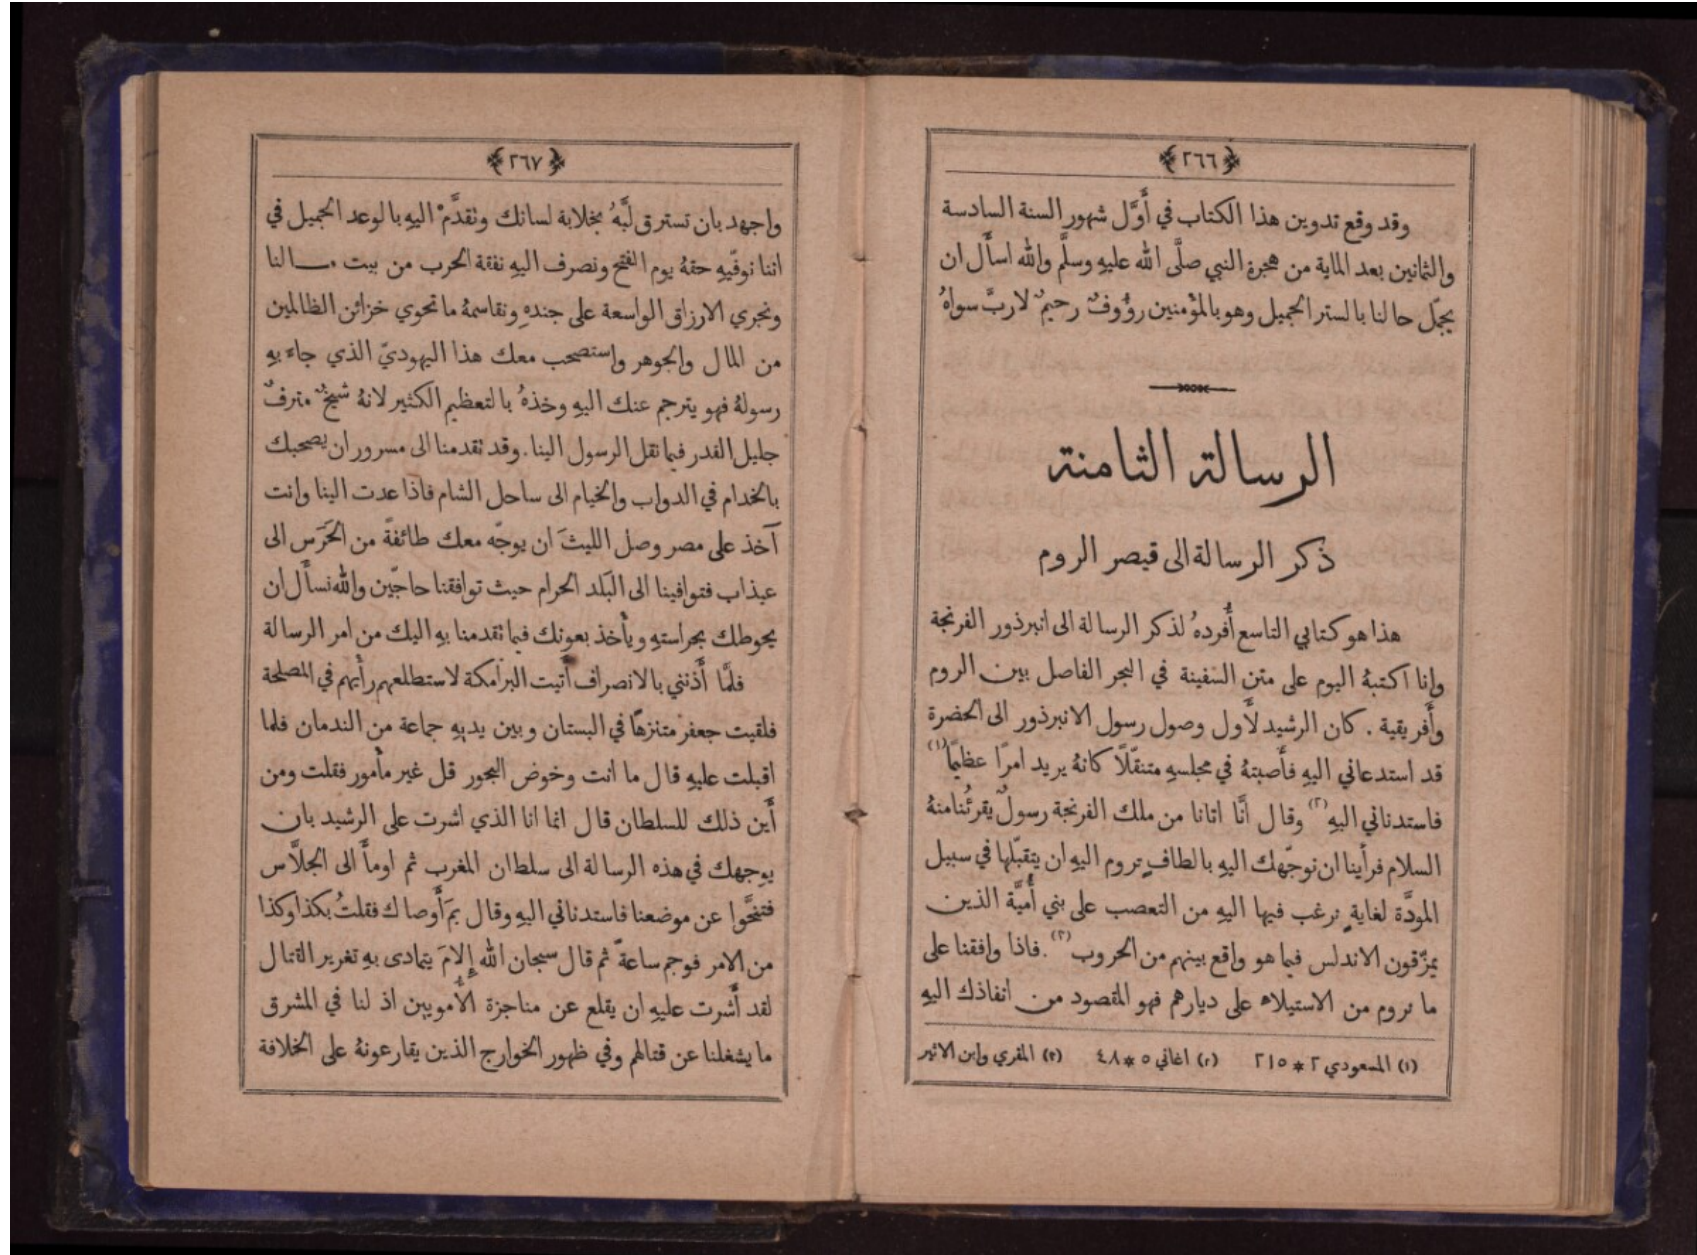 ﴿٢٦٦﴾
وقد وقع تدوين هذا الكتاب في أَوَّل شهور السنة السادسة
والثمانين بعد الماية من هجرة النبي صلَّى الله عليهِ وسلَّم والله اسأَل ان
يجمّل حالنا بالستر الجميل وهو بالمؤمنين رؤُوفٌ رحيمٌ لا ربَّ سواهُ
الرسالة الثامنة
ذكر الرسالة الى قيصر الروم
هذا هو كتابي التاسع أُفردهُ لذكر الرسالة الى انبرذور الفرنجة
وانا اكتبهُ اليوم على متن السفينة في البحر الفاصل بين الروم
وأَفريقية . كان الرشيد لأَول وصول رسول الانبرذور الى الحضرة
قد استدعاني اليهِ فأَصبتهُ في مجلسهِ متنقّلًا كانهُ يريد امرًا عظيمًا (١)
فاستدناني اليهِ (٢) وقال انَّا اتانا من ملك الفرنجة رسولٌ يقرئُنا منهُ
السلام فرأَينا ان نوجّهك اليهِ بالطافٍ نروم اليهِ ان يتقبّلها في سبيل
المودَّة لغايةٍ نرغب فيها اليهِ من التعصب على بني أُميَّة الذين
يمزّقون الاندلس فيما هو واقع بينهم من الحروب (٣) . فاذا وافقنا على
ما نروم من الاستيلاء على ديارهم فهو المقصود من انفاذك اليهِ
(١) المسعودي ٢ * ٢١٥ (٢) اغاني ٥ * ٤٨ (٣) المقري وابن الاثير
﴿٢٦٧﴾
واجهد بان تسترق لبَّهُ بخلابة لسانك وتقدَّمْ اليهِ بالوعد الجميل في
اننا نوفّيهِ حقهُ يوم الفتح ونصرف اليهِ نفقة الحرب من بيت مـالنا
ونجري الارزاق الواسعة على جندهِ ونقاسمهُ ما تحوي خزائن الظالمين
من المال والجوهر واستصحب معك هذا اليهوديّ الذي جاءَ بهِ
رسولهُ فهو يترجم عنك اليهِ وخذهُ بالتعظيم الكثير لانهُ شيخٌ مترفٌ
جليل القدر فيما نقل الرسول الينا . وقد تقدمنا الى مسرور ان يصحبك
بالخدام في الدواب والخيام الى ساحل الشام فاذا عدت الينا وانت
آخذ على مصر وصل الليثَ ان يوجّه معك طائفةً من الحَرَس الى
عيذاب فتوافينا الى البَلد الحرام حيث توافقنا حاجّين والله نسأَل ان
يحوطك بحراستهِ ويأخذ بعونك فيما تقدمنا بهِ اليك من امر الرسالة
فلمَّا أَذنني بالانصراف أَتيت البرامكة لاستطلعهم رأيهم في المصلحة
فلقيت جعفر متنزهًا في البستان وبين يديهِ جماعة من الندمان فلما
اقبلت عليهِ قال ما انت وخوض البحور قل غير مأمور فقلت ومن
أَين ذلك للسلطان قال انما انا الذي اشرت على الرشيد بان
يوجهك في هذه الرسالة الى سلطان المغرب ثم اومأَ الى الجلَّاس
فتنحَّوا عن موضعنا فاستدناني اليهِ وقال بمَ أَوصاك فقلتُ بكذا وكذا
من الامر فوجم ساعةً ثم قال سبحان الله إِلامَ يتمادى بهِ تغرير التمال
لقد أَشرت عليهِ ان يقلع عن مناجزة الأُمويين اذ لنا في المشرق
ما يشغلنا عن قتالهم وفي ظهور الخوارج الذين يقارعونهُ على الخلافة